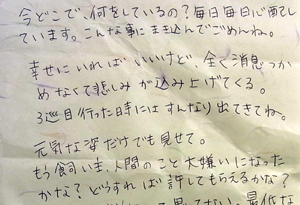 今どこで、何をしているの?毎日毎日心配し
ています。こんな事にまき込んでごめんね。
幸せにいればいいけど、全く消息つか
めなくて悲しみが込み上げてくる。
3巡目行った時にはすんなり出てきてね。
元気な姿だけでも見せて。
もう飼い主、人間のこと大嫌いになった
かな?どうすれば許してもらえるかな?